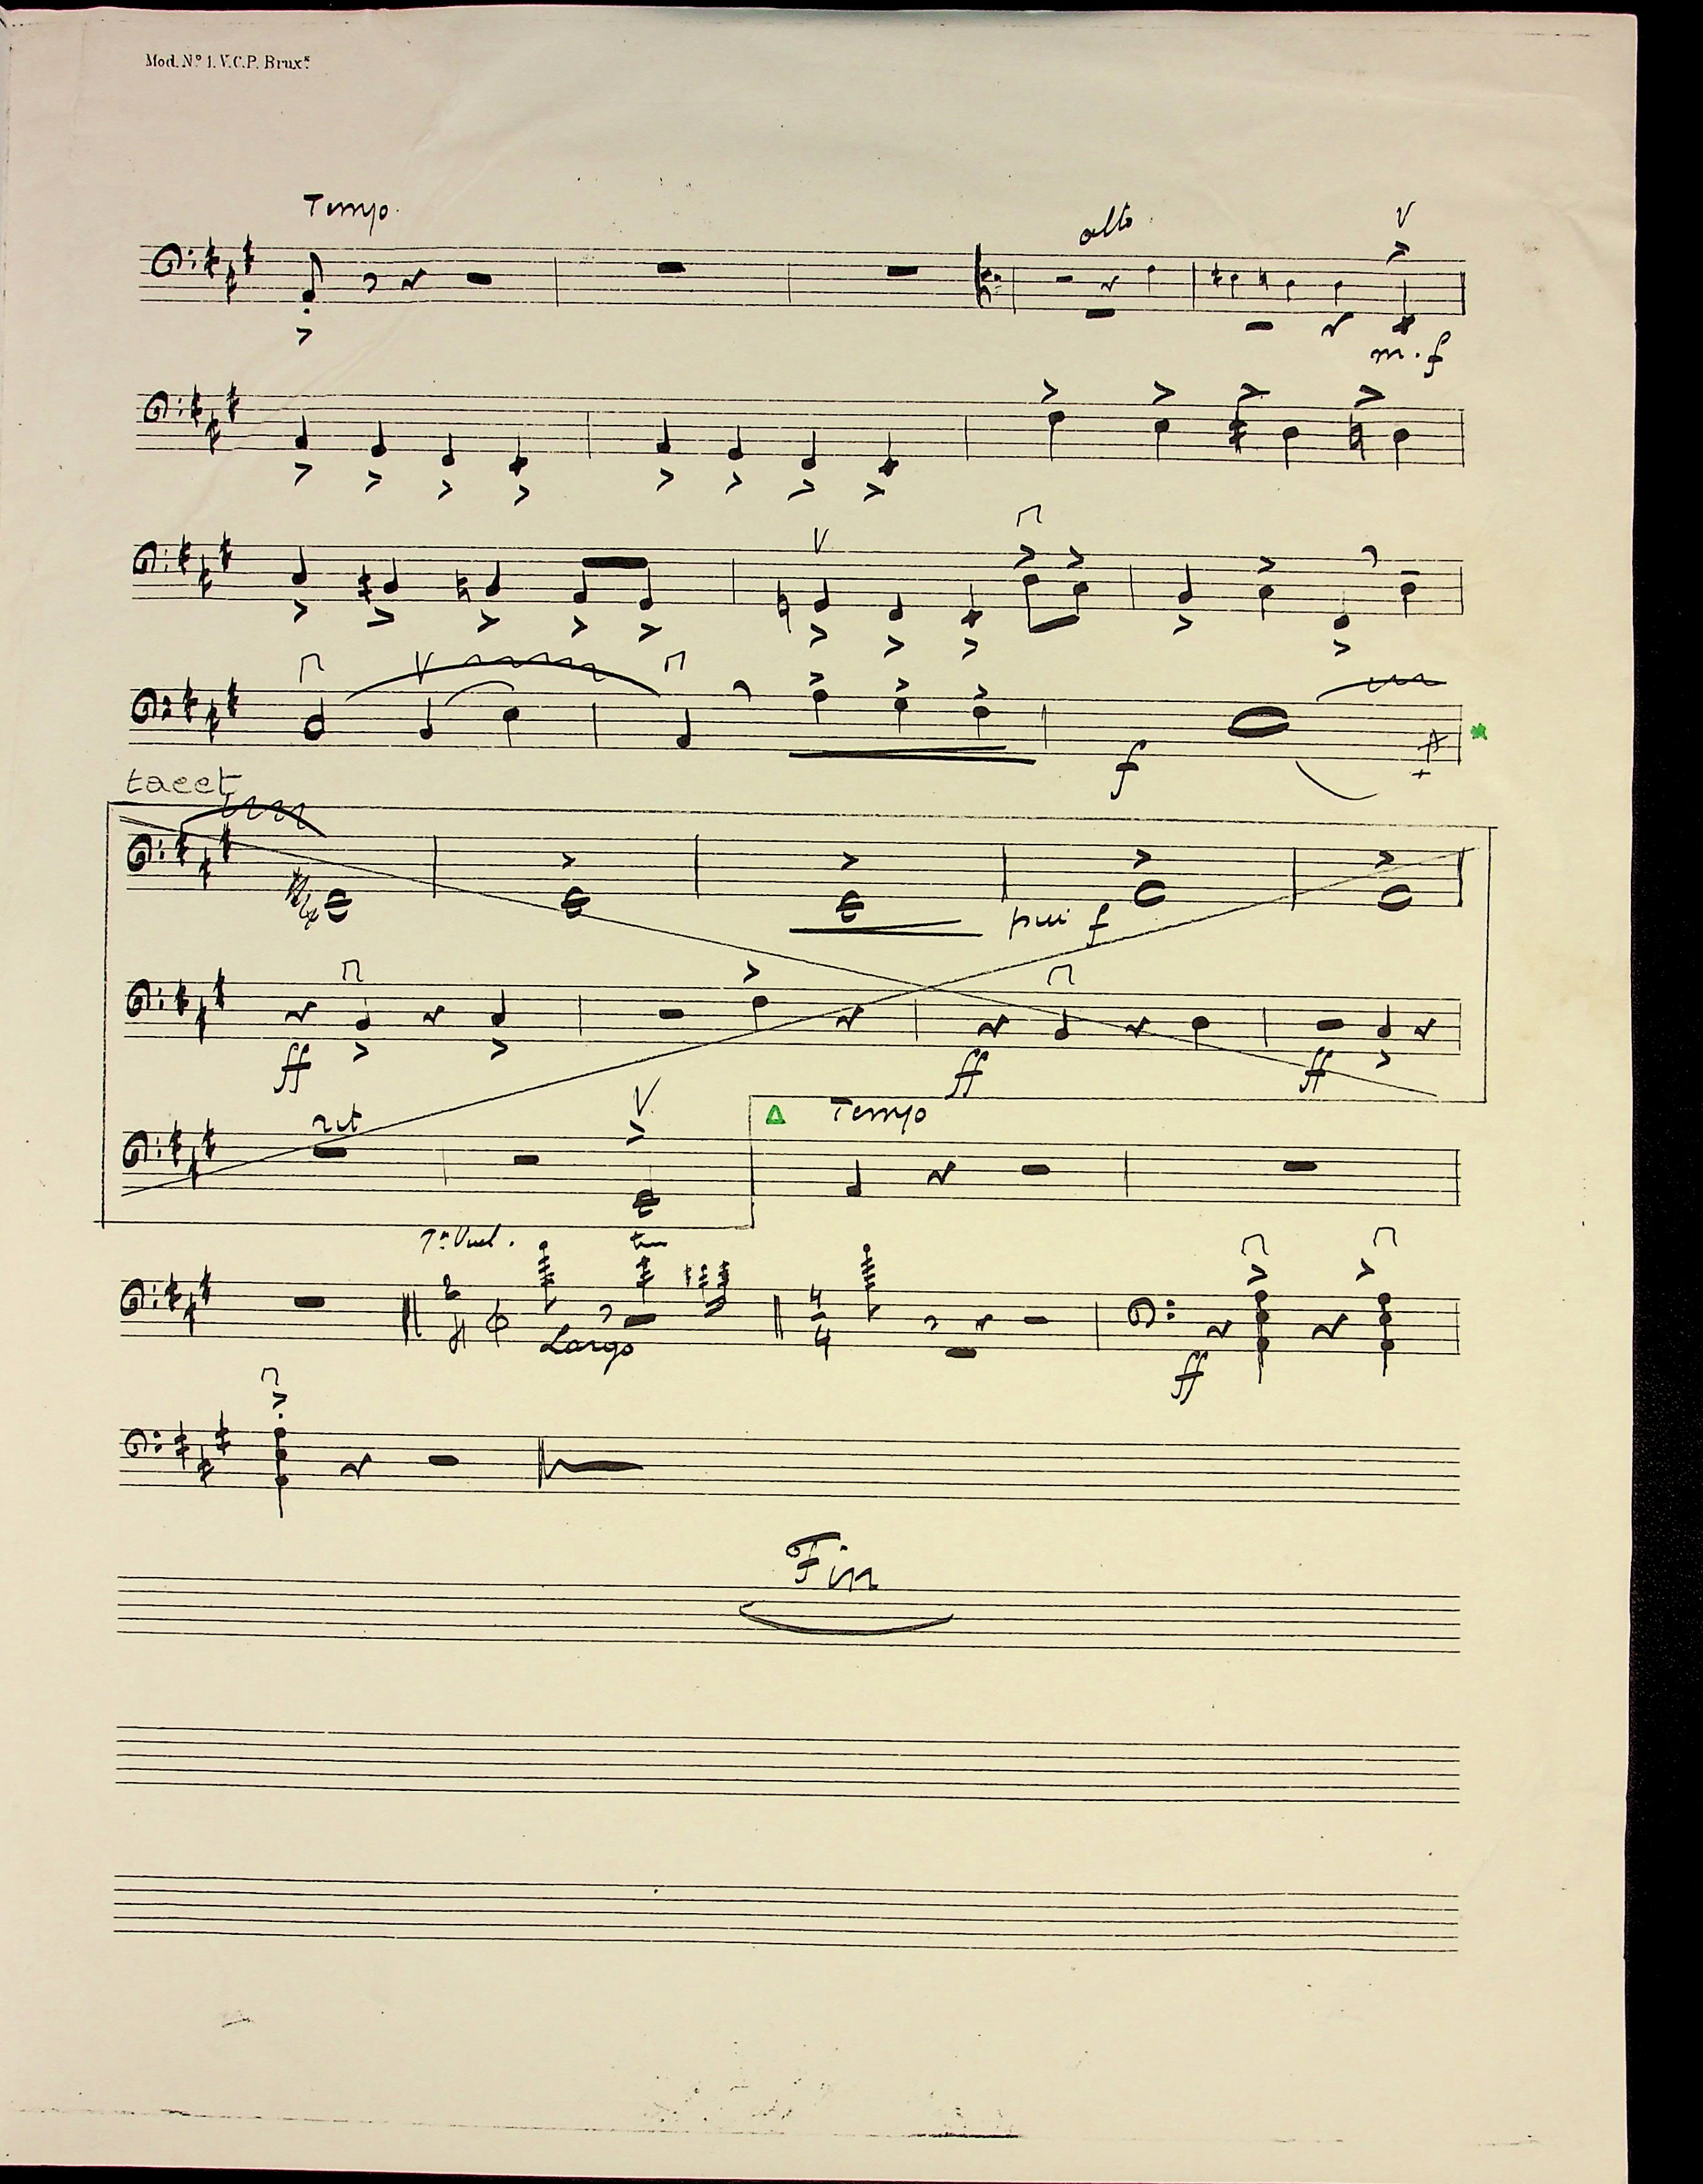 Mod. Nº 1. V.C.P. Brux.
Tempo.
alto
m.f
f
tacet
piu f
ff
ff
ff
rit
Tempo
tr
2
4
4
4
Largo
ff
Fin